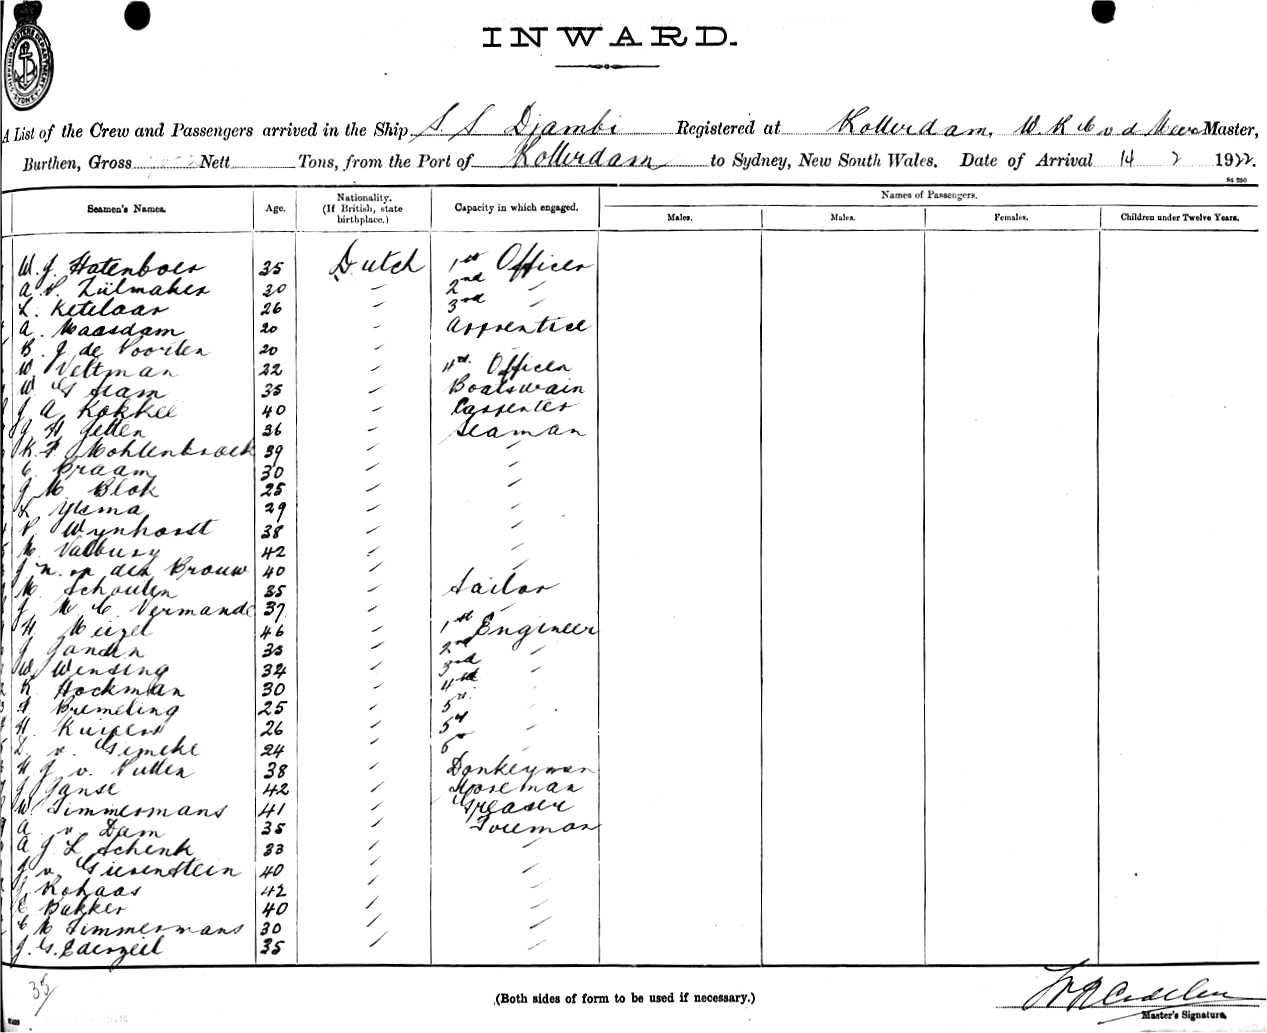 INWARD.
A List of the Crew and Passengers arrived in the Ship S. S Djambi Registered at Rotterdam, W. K C v d Meer Master,
Burthen, Gross Nett Tons, from the Port of Rotterdam to Sydney, New South Wales. Date of Arrival 14 2 1922.
Names of Passengers.
Seamen's Names. Age. Nationality. (If British, state birthplace.) Capacity in which engaged. Males. Males. Females. Children under Twelve Years.
W. J. Hatenboer 35 Dutch 1st Officer
A. P. Zulmaker 30 " 2nd "
L. Ketelaar 26 " 3rd "
A. Maasdam 20 " Apprentice
B. J. de Voorten 20 "
W Veltman 22 " 4th Officer
W G Stam 35 " Boatswain
J A Kokkel 40 " Carpenter
J H Jetten 36 " Seaman
K. F. Mohlenbroek 39 " "
C. Braam 30 " "
J M. Blok 25 " "
L Ypma 29 " "
P Wynhorst 38 " "
M. Valbury 42 " "
J N. op den Brouw 40 " "
M. Schouten 35 " Sailor
J M C. Vermande 37 "
H Meizel 46 " 1st Engineer
J Jansen 33 " 2nd "
W. Wensing 34 " 3rd "
K Hockman 30 " 4th "
Bremeling 25 " 5th "
H. Kuipers 26 " 5th "
v. Gemeke 24 " 6 "
H J v. Putten 38 " Donkeyman
J Janse 42 " Storeman
W. Timmermans 41 " Greaser
A v. Dam 35 " Foreman
A J L Schenk 33 " "
J v. Giesenstein 40 " "
J Rohaas 42 " "
Bakker 40 " "
C M Timmermans 30 " "
J. G. Ederzeil 35 " "
35
(Both sides of form to be used if necessary.)
Master's Signature.